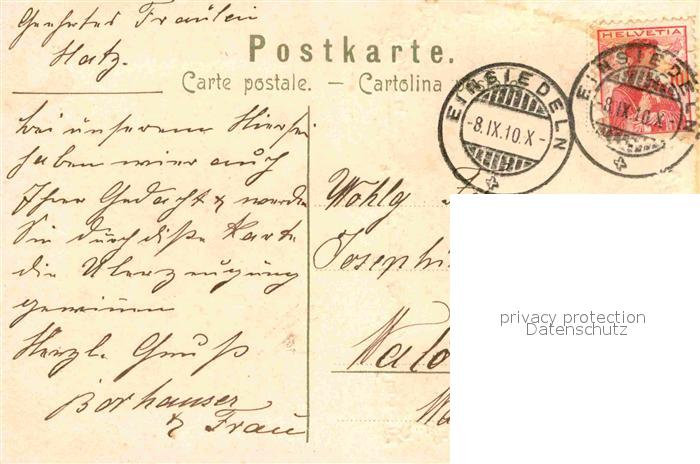 Geehrtes Fräulein
Hatz.
Postkarte.
Carte postale. — Cartolina
HELVETIA
EINSIEDELN
-8.IX.10.X-
EINSIEDELN
-8.IX.10.X-
bei unserem Hiersei
haben wier auch
Ihrer Gedacht & werde
Sie durch diße Karte
die Uberzeugung
gewinnen
Herzl. Gruß
Borhauser
& Frau
Wohlg
Josephi
privacy protection
Datenschutz